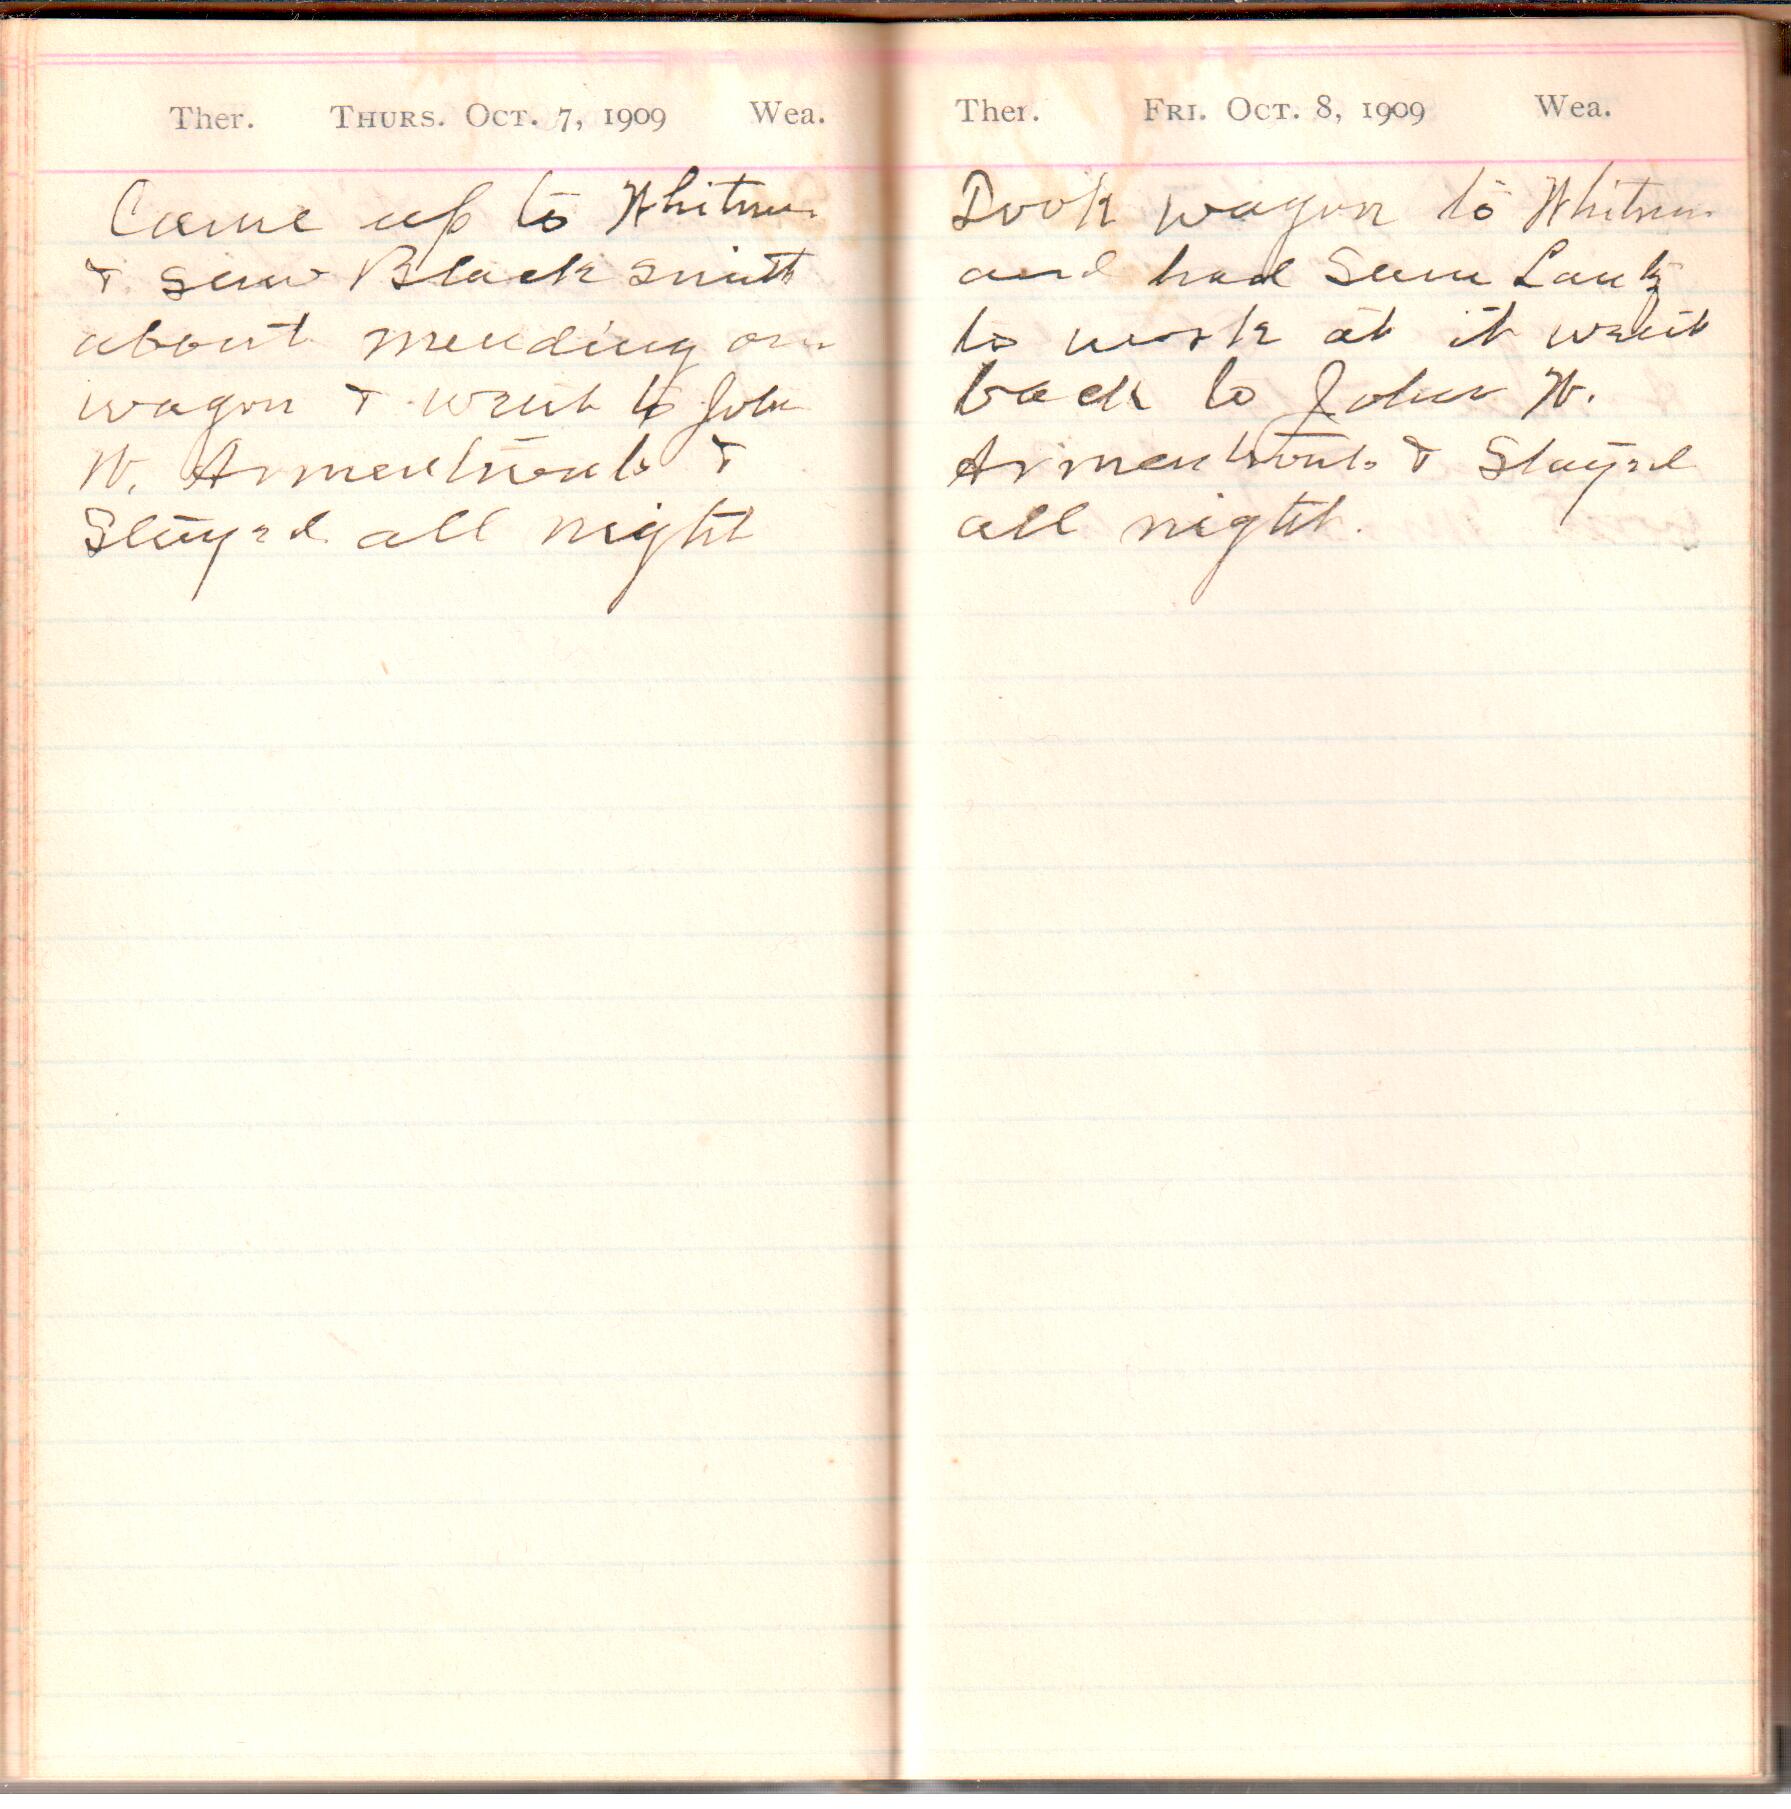 Ther. THURS. OCT. 7, 1909 Wea.
Came up to Whitmer
& saw Black smith
about mending our
wagon & went to John
W. Armentrouts &
Stayed all night
Ther. FRI. OCT. 8, 1909 Wea.
Took wagon to Whitmer
and had Sam Lantz
to work at it went
back to John W.
Armentrouts & Stayed
all night.